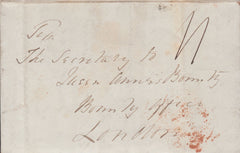 To
The Secretary to
Queen Anne's Bounty
Bounty Office
London